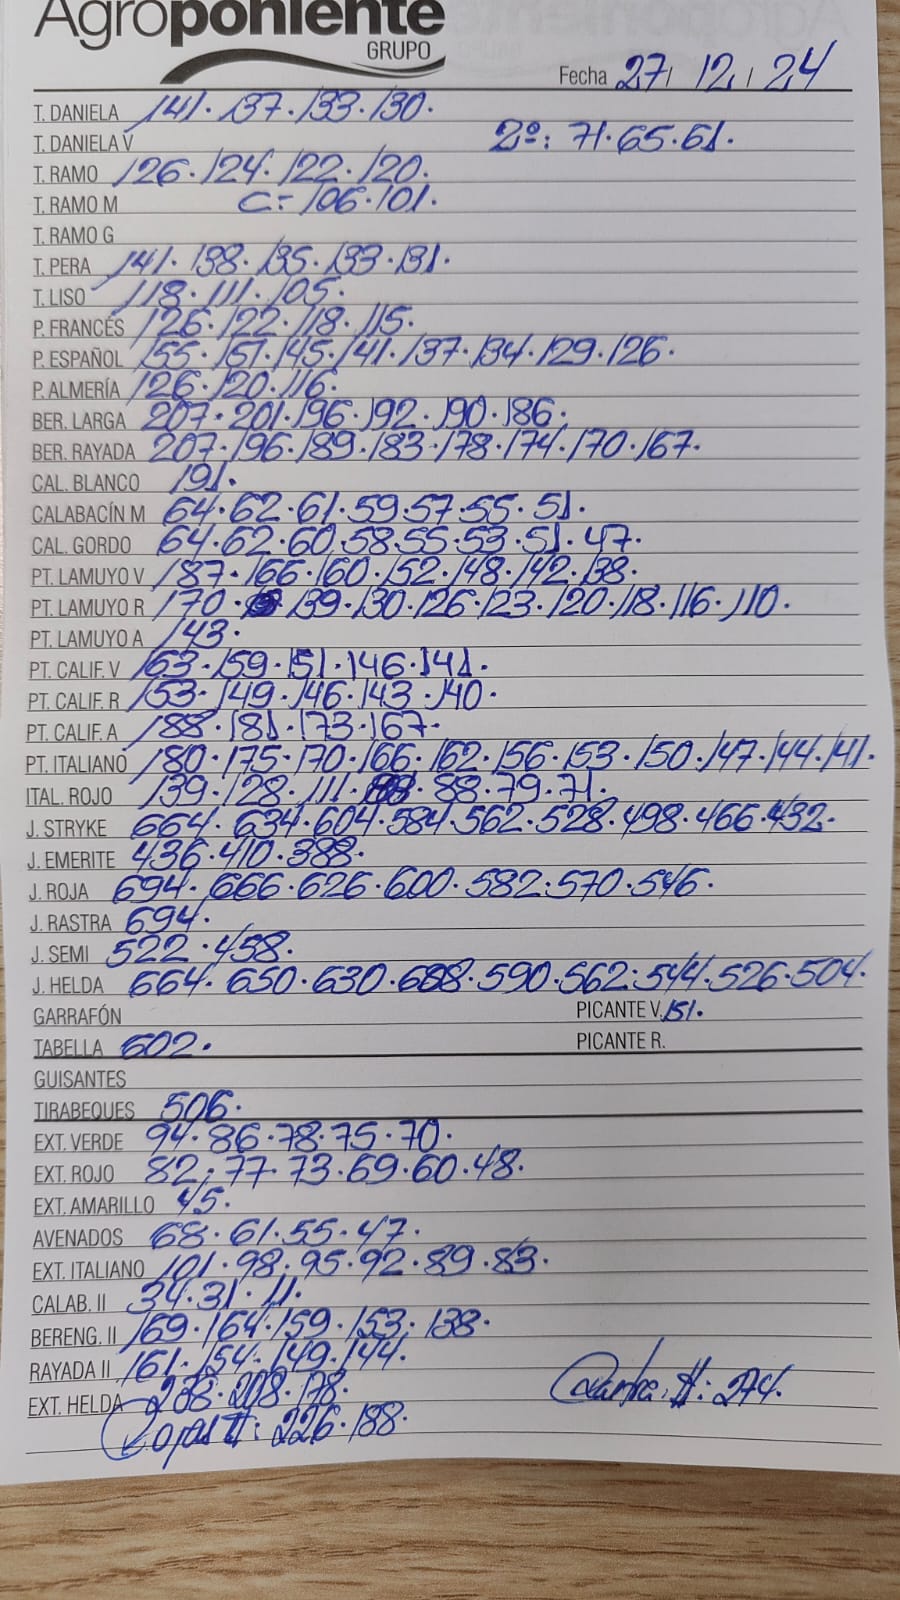 Agroponiente
GRUPO
Fecha 27/ 12 / 24
T. DANIELA 141. 137. 133. 130.
T. DANIELA V 2º: 71. 65. 61.
T. RAMO 126. 124. 122. 120.
T. RAMO M C= 106. 101.
T. RAMO G
T. PERA 141. 138. 135. 133. 131.
T. LISO 118. 111. 105.
P. FRANCÉS 126. 122. 118. 115.
P. ESPAÑOL 155. 151. 145. 141. 137. 134. 129. 126.
P. ALMERÍA 126. 120. 116.
BER. LARGA 207. 201. 196. 192. 190. 186.
BER. RAYADA 207. 196. 189. 183. 178. 174. 170. 167.
CAL. BLANCO 191.
CALABACÍN M 64. 62. 61. 59. 57. 55. 51.
CAL. GORDO 64. 62. 60. 58. 55. 53. 51. 47.
PT. LAMUYO V 187. 166. 160. 152. 148. 142. 138.
PT. LAMUYO R 170. 139. 130. 126. 123. 120. 118. 116. 110.
PT. LAMUYO A 143.
PT. CALIF. V 163. 159. 151. 146. 141.
PT. CALIF. R 153. 149. 146. 143. 140.
PT. CALIF. A 188. 181. 173. 167.
PT. ITALIANO 180. 175. 170. 166. 162. 156. 153. 150. 147. 144. 141.
ITAL. ROJO 139. 128. 111. 88. 79. 71.
J. STRYKE 664. 634. 604. 584. 562. 528. 498. 466. 432.
J. EMERITE 436. 410. 388.
J. ROJA 694. 666. 626. 600. 582. 570. 546.
J. RASTRA 694.
J. SEMI 522. 458.
J. HELDA 664. 650. 630. 590. 562. 544. 526. 504.
GARRAFÓN PICANTE V. 151.
TABELLA 602. PICANTE R.
GUISANTES
TIRABEQUES 506.
EXT. VERDE 94. 86. 78. 75. 70.
EXT. ROJO 82. 77. 73. 69. 60. 48.
EXT. AMARILLO 45.
AVENADOS 68. 61. 55. 47.
EXT. ITALIANO 101. 98. 95. 92. 89. 83.
CALAB. II 34. 31. 11.
BERENG. II 169. 164. 159. 153. 138.
RAYADA II 161. 154. 149. 144.
EXT. HELDA 178. II: 274.
Rojas II: 226. 188.